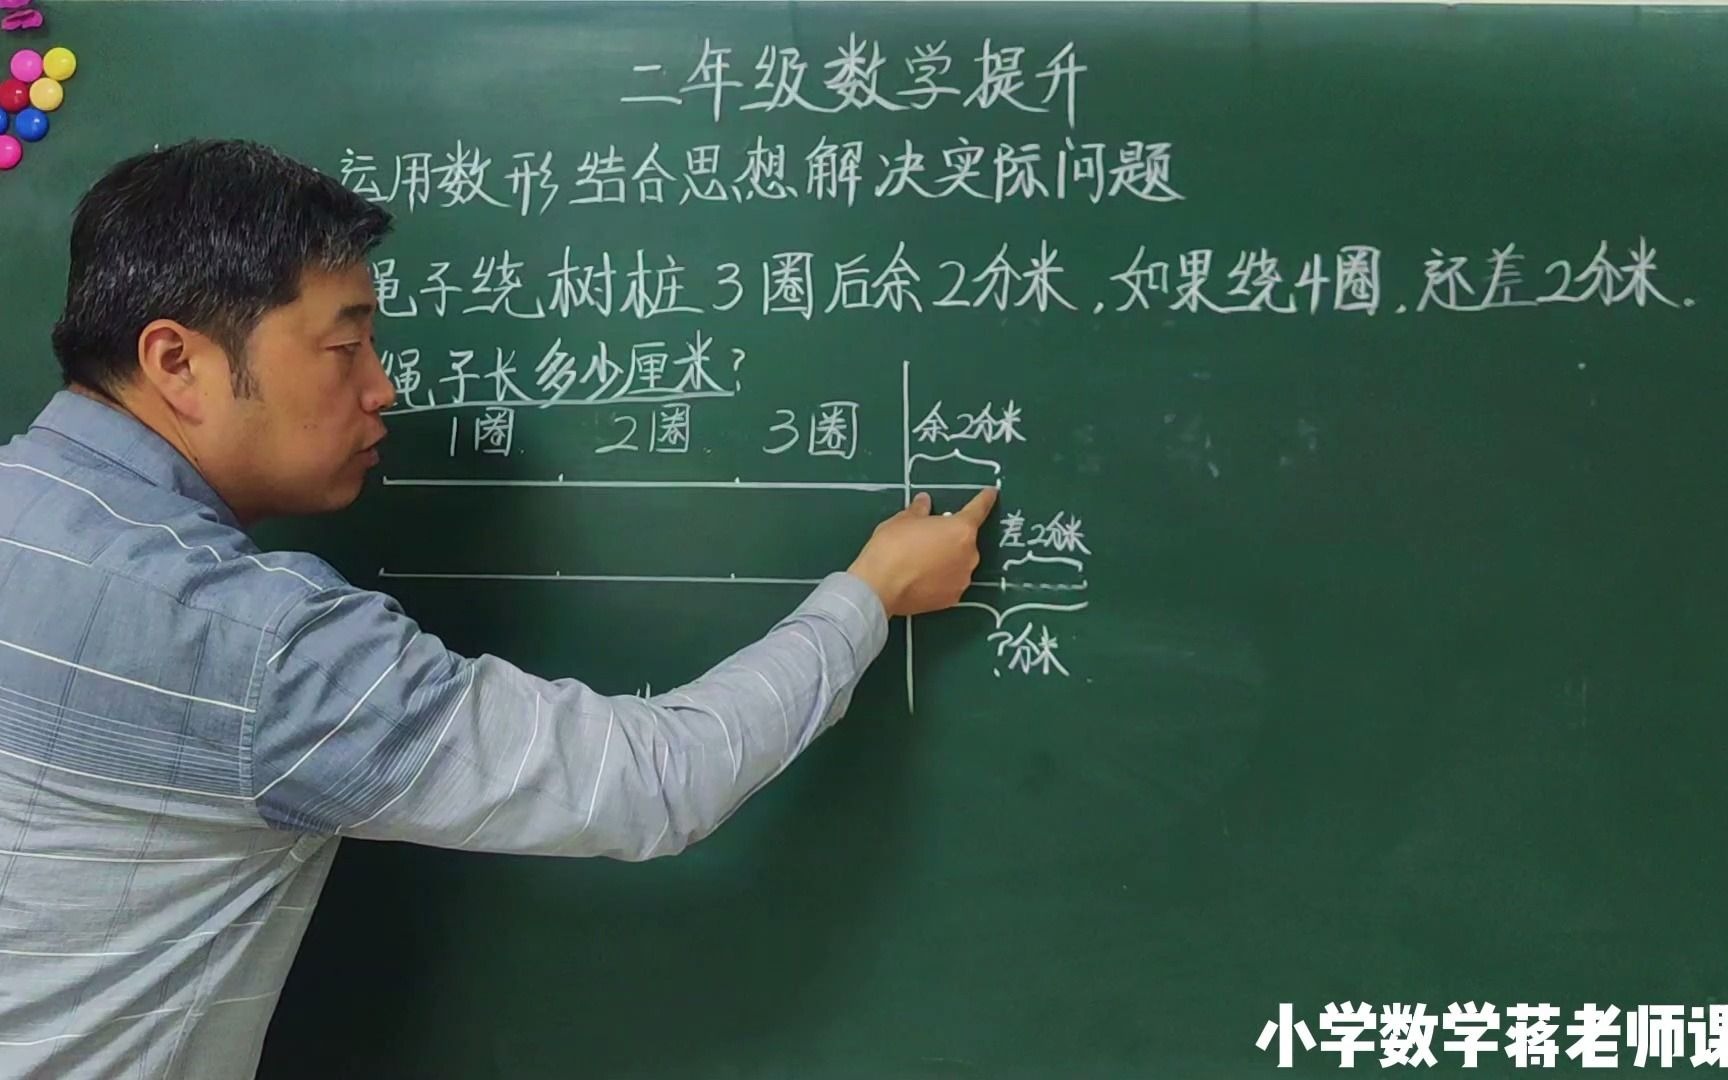 二年级数学提升
运用数形结合思想解决实际问题
绳子绕树桩3圈后余2分米,如果绕4圈,还差2分米.
绳子长多少厘米?
1圈 2圈 3圈 余2分米
差2分米
?分米
小学数学蒋老师课